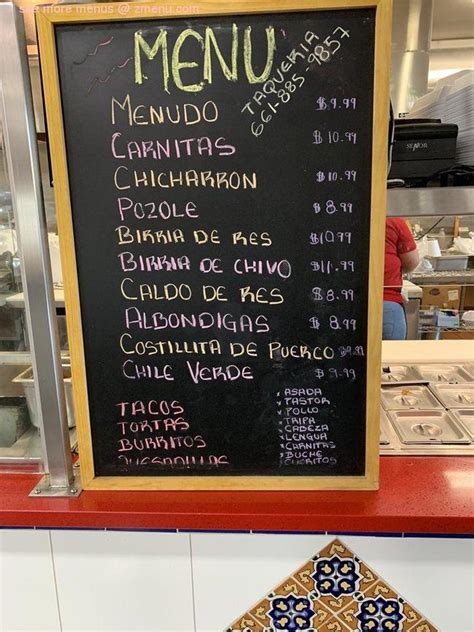 see more menus @ zmenu.com
MENU
TAQUERIA
661-885-9857
MENUDO $9.99
CARNITAS $10.99
CHICHARRON $10.99
POZOLE $8.99
BIRRIA DE RES $10.99
BIRRIA DE CHIVO $11.99
CALDO DE RES $8.99
ALBONDIGAS $8.99
COSTILLITA DE PUERCO $9.99
CHILE VERDE $9.99
TACOS
TORTAS
BURRITOS
QUESADILLAS
ASADA
PASTOR
POLLO
TRIPA
CABEZA
LENGUA
CARNITAS
BUCHE
CUERITOS